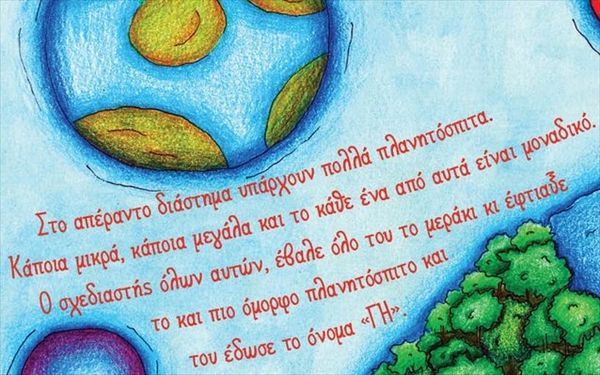 Στο απέραντο διάστημα υπάρχουν πολλά πλανητόσπιτα.
Κάποια μικρά, κάποια μεγάλα και το κάθε ένα από αυτά είναι μοναδικό.
Ο σχεδιαστής όλων αυτών, έβαλε όλο του το μεράκι κι έφτιαξε
το και πιο όμορφο πλανητόσπιτο και
του έδωσε το όνομα «ΓΗ».